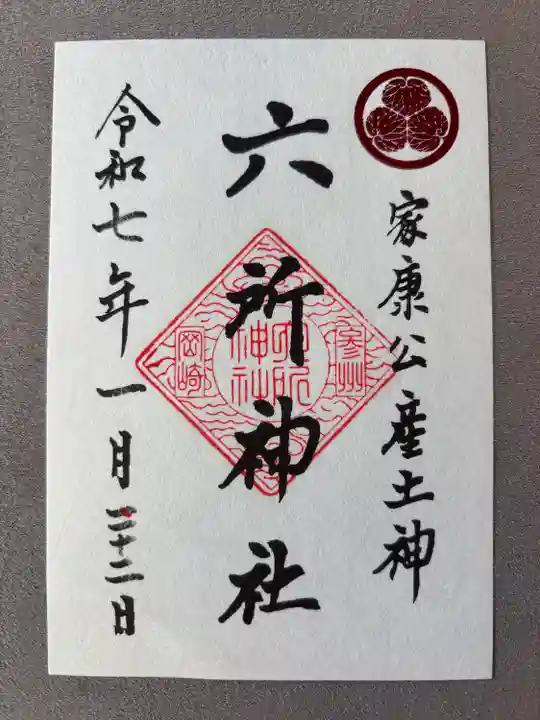 家康公産土神
六所神社
令和七年一月二十二日
参州
六所神社
岡崎